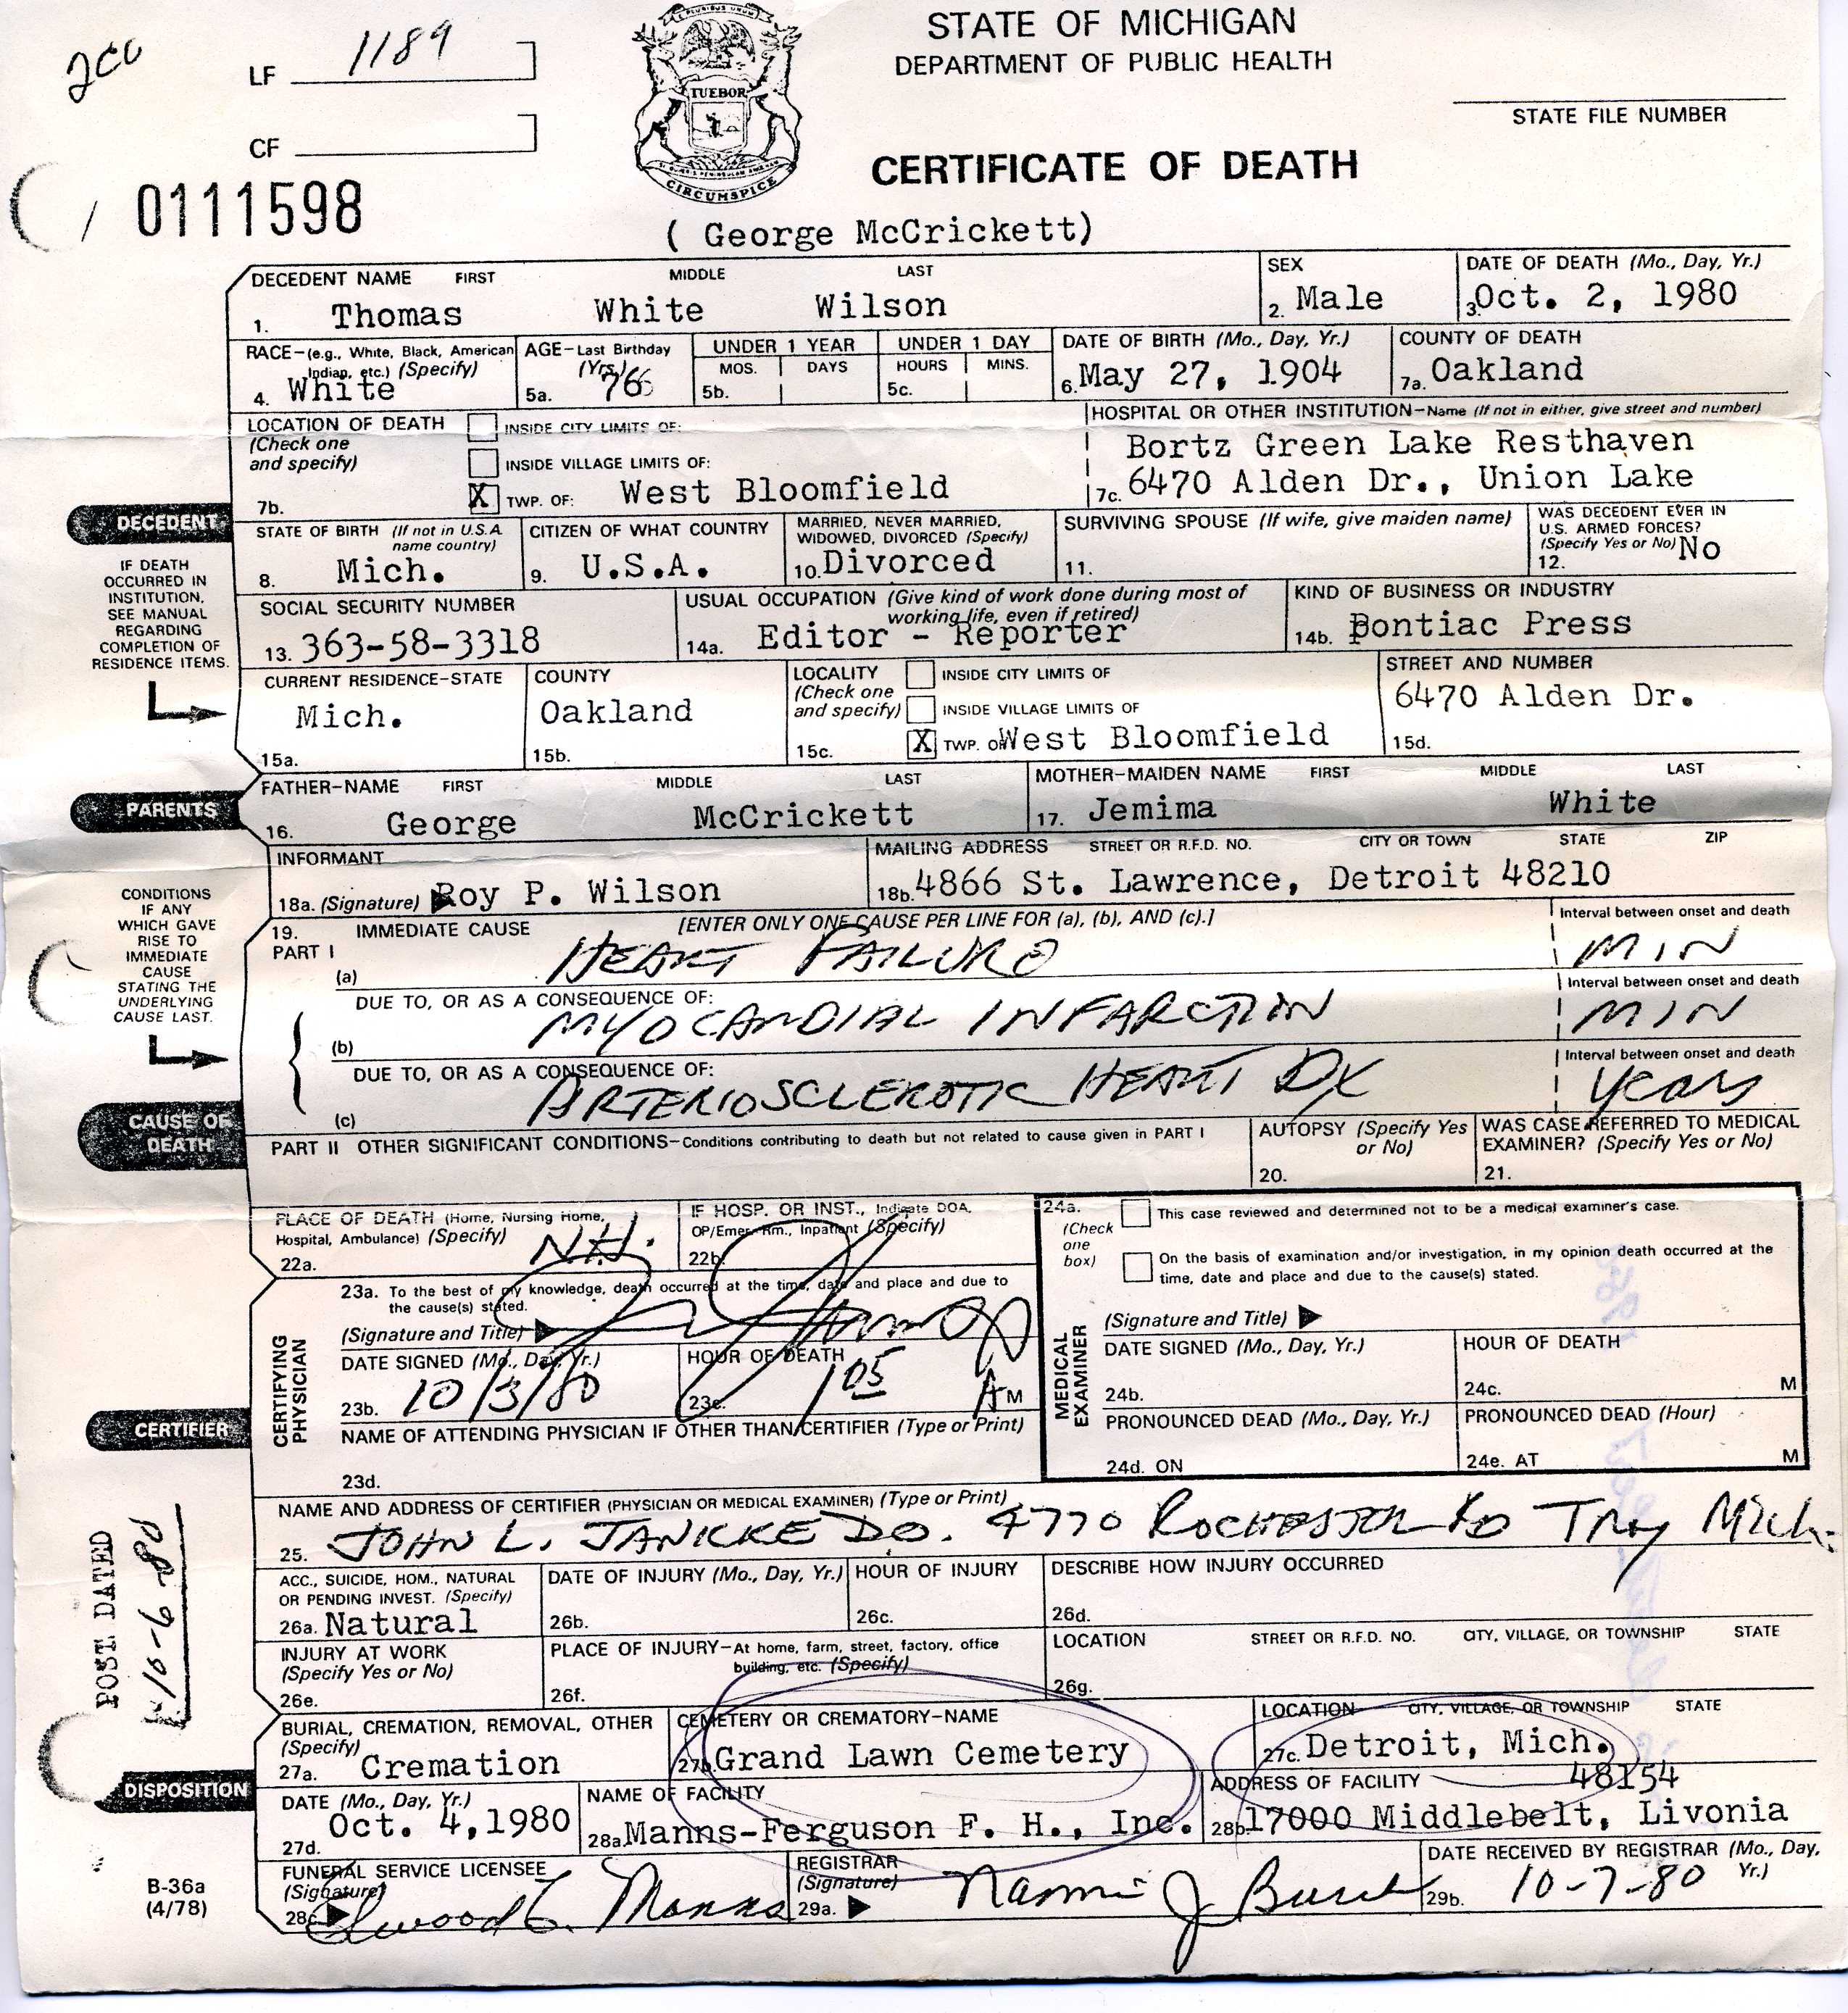 LF 1189
CF
0111598
STATE OF MICHIGAN
DEPARTMENT OF PUBLIC HEALTH
STATE FILE NUMBER
TUEBOR
CIRCUMSPICE
CERTIFICATE OF DEATH
( George McCrickett)
DECEDENT NAME FIRST MIDDLE LAST
1. Thomas White Wilson
SEX
2. Male
DATE OF DEATH (Mo., Day, Yr.)
3. Oct. 2, 1980
RACE-(e.g., White, Black, American
Indian, etc.) (Specify)
4. White
AGE-Last Birthday
(Yrs.)
5a. 76
UNDER 1 YEAR
MOS. DAYS
5b.
UNDER 1 DAY
HOURS MINS.
5c.
DATE OF BIRTH (Mo., Day, Yr.)
6. May 27, 1904
COUNTY OF DEATH
7a. Oakland
LOCATION OF DEATH
(Check one
and specify)
7b.
INSIDE CITY LIMITS OF:
INSIDE VILLAGE LIMITS OF:
X TWP. OF: West Bloomfield
HOSPITAL OR OTHER INSTITUTION-Name (If not in either, give street and number)
Bortz Green Lake Resthaven
7c. 6470 Alden Dr., Union Lake
DECEDENT
IF DEATH
OCCURRED IN
INSTITUTION,
SEE MANUAL
REGARDING
COMPLETION OF
RESIDENCE ITEMS.
STATE OF BIRTH (If not in U.S.A.
name country)
8. Mich.
CITIZEN OF WHAT COUNTRY
9. U.S.A.
MARRIED, NEVER MARRIED,
WIDOWED, DIVORCED (Specify)
10. Divorced
SURVIVING SPOUSE (If wife, give maiden name)
11.
WAS DECEDENT EVER IN
U.S. ARMED FORCES?
(Specify Yes or No) No
12.
SOCIAL SECURITY NUMBER
13. 363-58-3318
USUAL OCCUPATION (Give kind of work done during most of
working life, even if retired)
14a. Editor - Reporter
KIND OF BUSINESS OR INDUSTRY
14b. Pontiac Press
CURRENT RESIDENCE-STATE
Mich.
15a.
COUNTY
Oakland
15b.
LOCALITY
(Check one
and specify)
15c.
INSIDE CITY LIMITS OF
INSIDE VILLAGE LIMITS OF
X TWP. OF West Bloomfield
STREET AND NUMBER
6470 Alden Dr.
15d.
PARENTS
FATHER-NAME FIRST MIDDLE LAST
16. George McCrickett
MOTHER-MAIDEN NAME FIRST MIDDLE LAST
17. Jemima White
INFORMANT
18a. (Signature) Roy P. Wilson
MAILING ADDRESS STREET OR R.F.D. NO. CITY OR TOWN STATE ZIP
18b. 4866 St. Lawrence, Detroit 48210
CONDITIONS
IF ANY
WHICH GAVE
RISE TO
IMMEDIATE
CAUSE
STATING THE
UNDERLYING
CAUSE LAST.
CAUSE OF
DEATH
19. IMMEDIATE CAUSE [ENTER ONLY ONE CAUSE PER LINE FOR (a), (b), AND (c).]
PART I
(a) HEART FAILURE
Interval between onset and death
MIN
DUE TO, OR AS A CONSEQUENCE OF:
(b) MYOCARDIAL INFARCTION
Interval between onset and death
MIN
DUE TO, OR AS A CONSEQUENCE OF:
(c) ARTERIOSCLEROTIC HEART DX
Interval between onset and death
years
PART II OTHER SIGNIFICANT CONDITIONS-Conditions contributing to death but not related to cause given in PART I
AUTOPSY (Specify Yes
or No)
20.
WAS CASE REFERRED TO MEDICAL
EXAMINER? (Specify Yes or No)
21.
PLACE OF DEATH (Home, Nursing Home,
Hospital, Ambulance) (Specify)
22a. N.H.
IF HOSP. OR INST., Indicate DOA,
OP/Emer. Rm., Inpatient (Specify)
22b.
CERTIFIER
CERTIFYING
PHYSICIAN
23a. To the best of my knowledge, death occurred at the time, date and place and due to
the cause(s) stated.
(Signature and Title)
DATE SIGNED (Mo., Day, Yr.)
23b. 10/3/80
HOUR OF DEATH
23c. 1 05 A M
NAME OF ATTENDING PHYSICIAN IF OTHER THAN CERTIFIER (Type or Print)
23d.
MEDICAL
EXAMINER
24a.
(Check
one
box)
This case reviewed and determined not to be a medical examiner's case.
On the basis of examination and/or investigation, in my opinion death occurred at the
time, date and place and due to the cause(s) stated.
(Signature and Title)
DATE SIGNED (Mo., Day, Yr.)
24b.
HOUR OF DEATH
24c. M
PRONOUNCED DEAD (Mo., Day, Yr.)
24d. ON
PRONOUNCED DEAD (Hour)
24e. AT M
NAME AND ADDRESS OF CERTIFIER (PHYSICIAN OR MEDICAL EXAMINER) (Type or Print)
25. JOHN L. JANICKE D.O. 4770 ROCHESTER RD Troy Mich.
POST DATED
10-6-80
ACC., SUICIDE, HOM., NATURAL
OR PENDING INVEST. (Specify)
26a. Natural
DATE OF INJURY (Mo., Day, Yr.)
26b.
HOUR OF INJURY
26c.
DESCRIBE HOW INJURY OCCURRED
26d.
INJURY AT WORK
(Specify Yes or No)
26e.
PLACE OF INJURY-At home, farm, street, factory, office
building, etc. (Specify)
26f.
LOCATION STREET OR R.F.D. NO. CITY, VILLAGE, OR TOWNSHIP STATE
26g.
DISPOSITION
BURIAL, CREMATION, REMOVAL, OTHER
(Specify)
27a. Cremation
CEMETERY OR CREMATORY-NAME
27b. Grand Lawn Cemetery
LOCATION CITY, VILLAGE, OR TOWNSHIP STATE
27c. Detroit, Mich.
DATE (Mo., Day, Yr.)
27d. Oct. 4,1980
NAME OF FACILITY
28a. Manns-Ferguson F. H., Inc.
ADDRESS OF FACILITY 48154
28b. 17000 Middlebelt, Livonia
B-36a
(4/78)
FUNERAL SERVICE LICENSEE
(Signature)
28c. Elwood C. Manns
REGISTRAR
(Signature)
29a.
DATE RECEIVED BY REGISTRAR (Mo., Day,
Yr.)
29b. 10-7-80